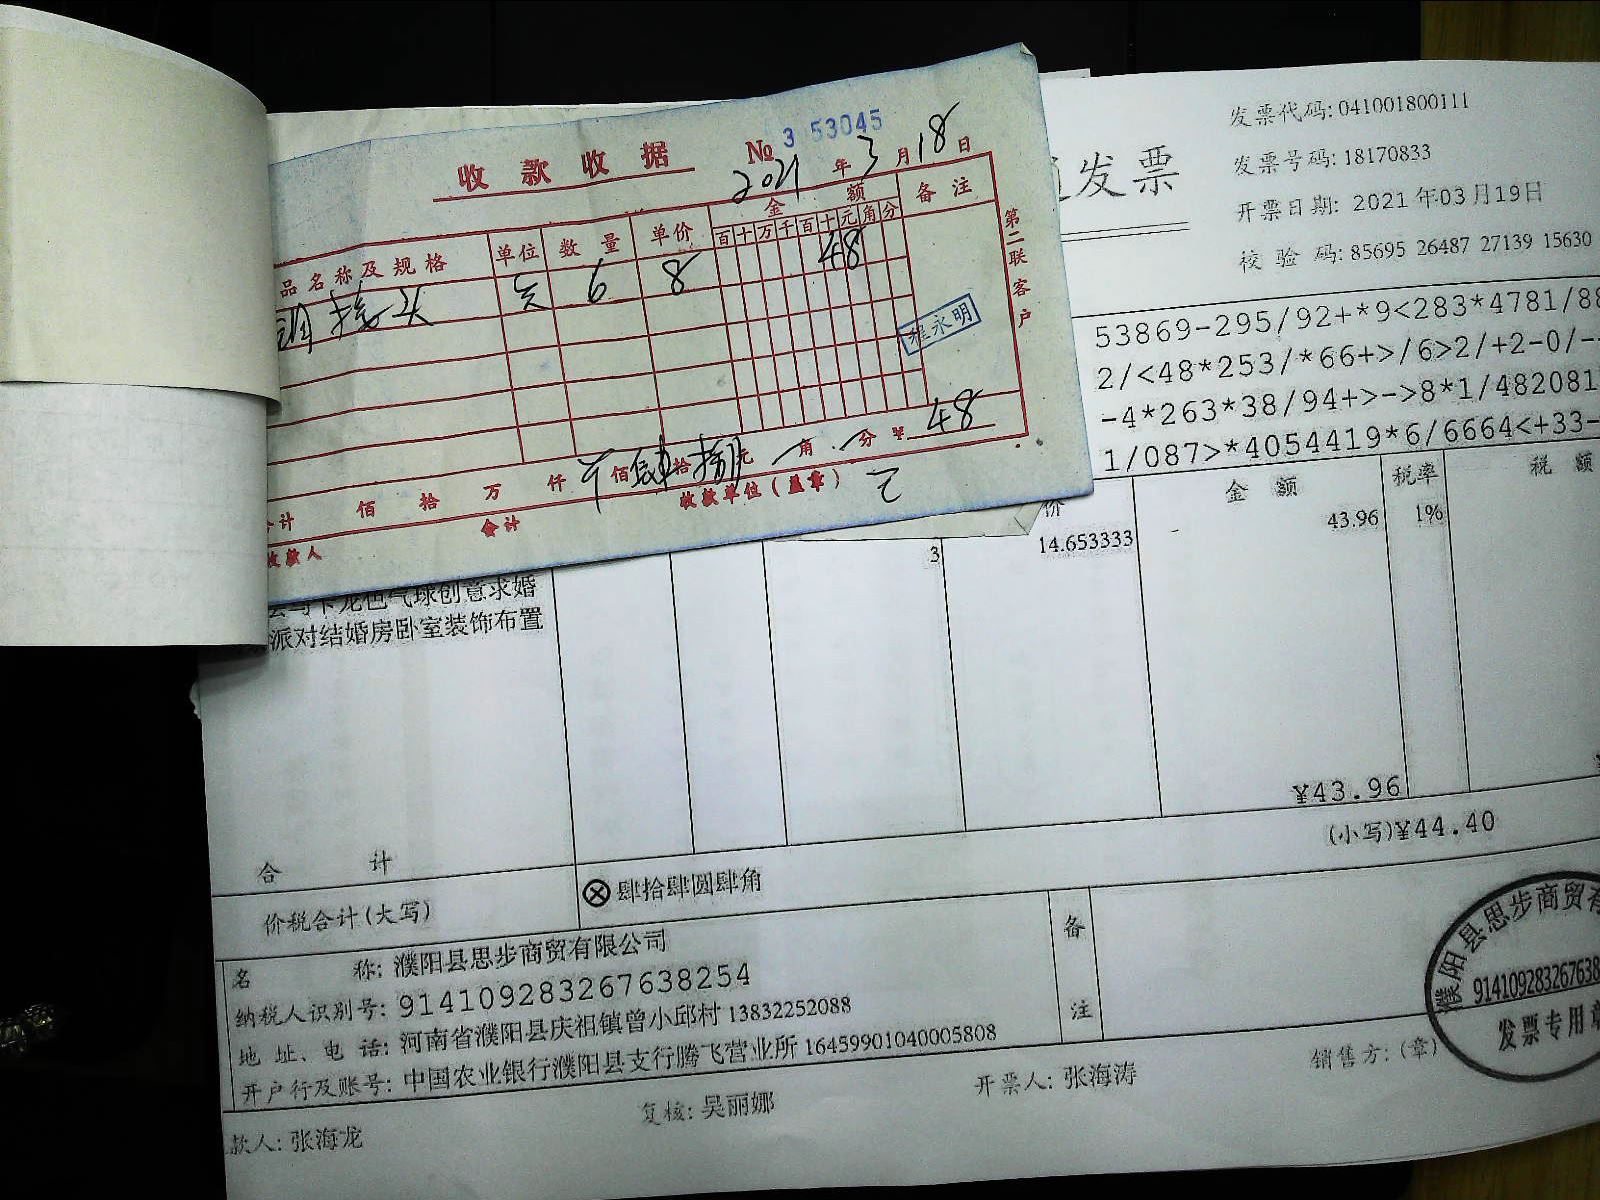 收款收据
№ 3 53045
2021 年 3 月 18 日
品名称及规格 单位 数量 单价 金额 备注
百 十 万 千 百 十 元 角 分
接头 6 8 48
程永明
第二联客户
合计 佰 拾 万 仟 佰 肆拾捌元 角 分 ¥ 48
收款人 会计 收款单位(盖章)
发票
发票代码: 041001800111
发票号码: 18170833
开票日期: 2021年03月19日
校验码: 85695 26487 27139 15630
53869-295/92+*9<283*4781/88
2/<48*253/*66+>/6>2/+2-0/--
-4*263*38/94+>->8*1/482081
1/087>*4054419*6/6664<+33-
价 金额 税率 税额
3 14.653333 43.96 1%
马卡龙色气球创意求婚
派对结婚房卧室装饰布置
合计 ¥43.96
价税合计(大写) ⊗肆拾肆圆肆角 (小写)¥44.40
名称: 濮阳县思步商贸有限公司
纳税人识别号: 914109283267638254
地址、电话: 河南省濮阳县庆祖镇曾小邱村 13832252088
开户行及账号: 中国农业银行濮阳县支行腾飞营业所 16459901040005808
备注
款人: 张海龙 复核: 吴丽娜 开票人: 张海涛 销售方: (章)
濮阳县思步商贸有
914109283267638
发票专用章